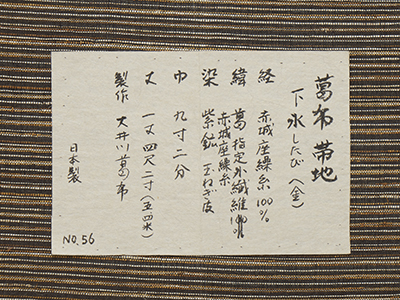 葛布帯地
下氷したび〈金〉
経 赤城座繰糸100%
緯 葛指定外繊維100%
赤城座繰糸
染 紫鉱 玉ねぎ皮
巾 九寸二分
丈 一丈四尺二寸(五、四米)
製作 大井川葛布
日本製
NO.56